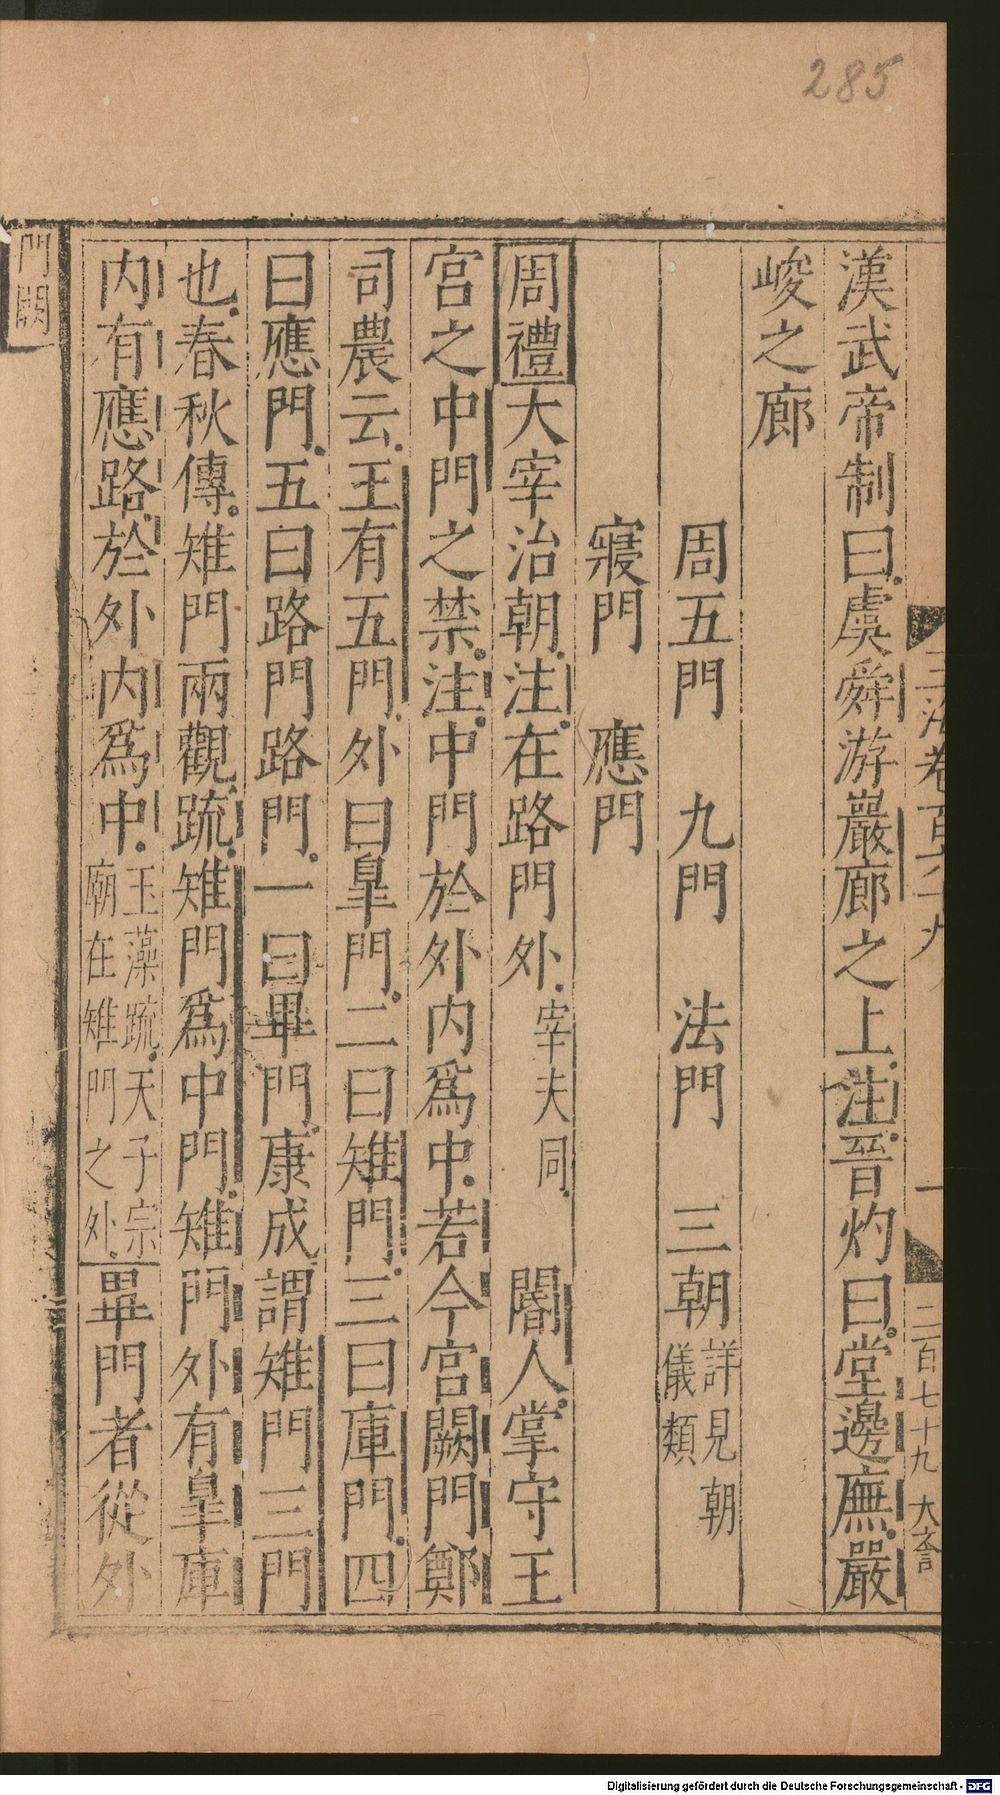 285
漢武帝制曰虞舜游巖廊之上注晉灼曰堂邊廡巖
峻之廊
周五門　九門　法門　三朝詳見朝儀類
寢門　應門
周禮大宰治朝注在路門外宰夫同　閽人掌守王
宮之中門之禁注中門於外内爲中若今宮闕門鄭
司農云王有五門外曰臯門二曰雉門三曰庫門四
曰應門五曰路門路門一曰畢門康成謂雉門三門
也春秋傳雉門兩觀䟽雉門爲中門雉門外有臯庫
内有應路於外内爲中玉藻䟽天子宗廟在雉門之外畢門者從外
門闕
二百七十九　大
Digitalisierung gefördert durch die Deutsche Forschungsgemeinschaft - DFG